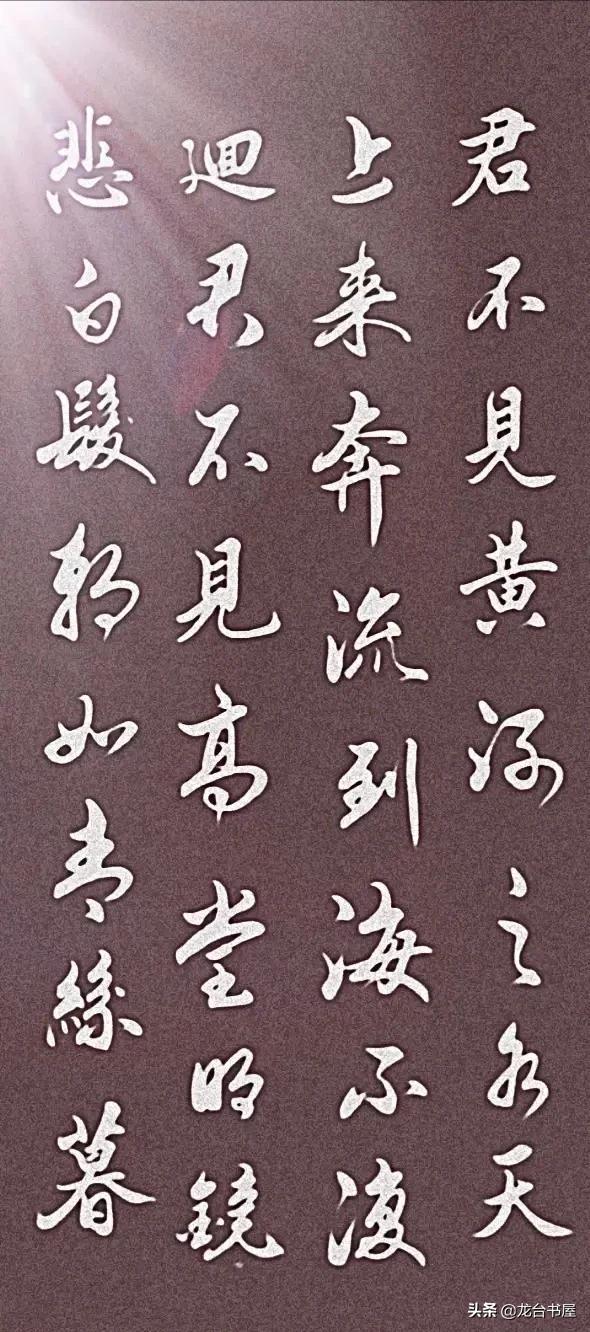 君不見黃河之水天
上来奔流到海不復
迴君不見高堂明鏡
悲白髮朝如青絲暮
头条 @龙台书屋